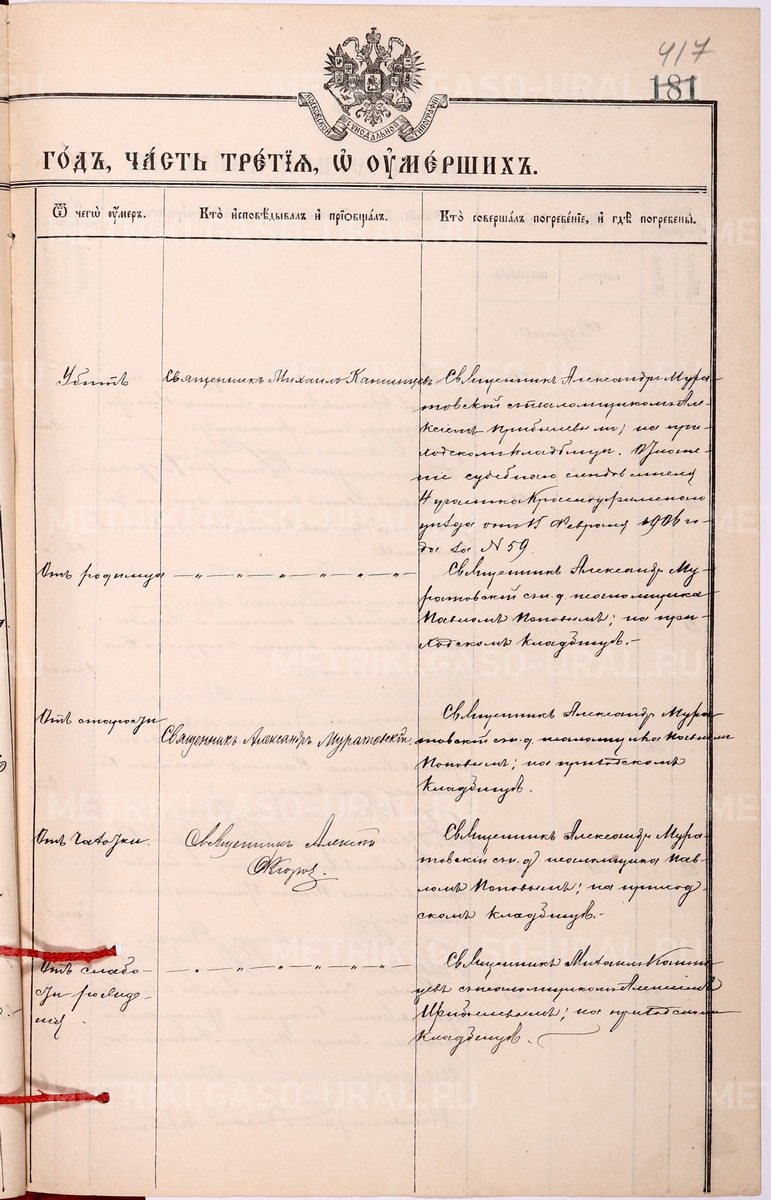 417
181
МОСКОВСКОЙ СѴНОДАЛЬНОЙ ТИПОГРАФІИ
ГО́ДЪ, ЧА́СТЬ ТРЕ́ТІѦ, Ѡ҆ ОУ҆МЕ́РШИХЪ.
Ѿ чегѡ̀ оу҆́меръ.
Кто̀ и҆сповѣ́дывалъ и҆ прїѡбща́лъ.
Кто̀ соверша́лъ погребе́нїе, и҆ гдѣ̀ погребены̀.
Убитъ
Священникъ Михаилъ
Священникъ Александръ Мура-
товскій съ псаломщикомъ Але-
ксѣемъ Прибылевымъ; на при-
ходскомъ кладбищѣ. Отноше-
ніе судебнаго слѣдователя
4 участка Красноуфимскаго
уѣзда отъ 15 Февраля 1906 го-
да за N 59.
Отъ родимца
— „ — „ — „ — „ — „ —
Священникъ Александръ Му-
ратовскій съ и. д. псаломщика
Павломъ Поповымъ; на при-
ходскомъ кладбищѣ.-
Отъ старости
Священникъ Александръ Муратовскій.
Священникъ Александръ Мура-
товскій съ и. д. псаломщика Павломъ
Поповымъ; на приходскомъ
кладбищѣ.
Отъ чахотки.
Священникъ Алексѣй
Священникъ Александръ Мура-
товскій съ и. д. псаломщика Пав-
ломъ Поповымъ; на приход-
скомъ кладбищѣ.-
Отъ слабо-
сти рожде-
нія.
— „ — „ — „ — „ — „ —
Священникъ Михаилъ
съ псаломщикомъ Алексѣемъ
Прибылевымъ; на приходскомъ
кладбищѣ.
METRIKI.GASO-URAL.RU